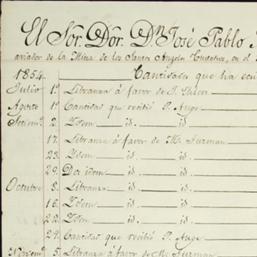 El Sor. Dor. Dn. José Pablo
de la Mina de los Santos Angeles
1854. Cantidades que ha
Julio 1º Libranza á favor de J.
Agosto 1º Cantidad que recibió P. Auge
Setiemb. 2. Idem id. id.
17. Libranza á favor de M. Guzman
23. Idem id. id.
29. Dos idem id. id.
Octubre 5. Libranza id. id.
16. Idem id. id.
22. Idem id. id.
29. Cantidad que recibió P. Auge
5. Libranza á favor de M. Guzman